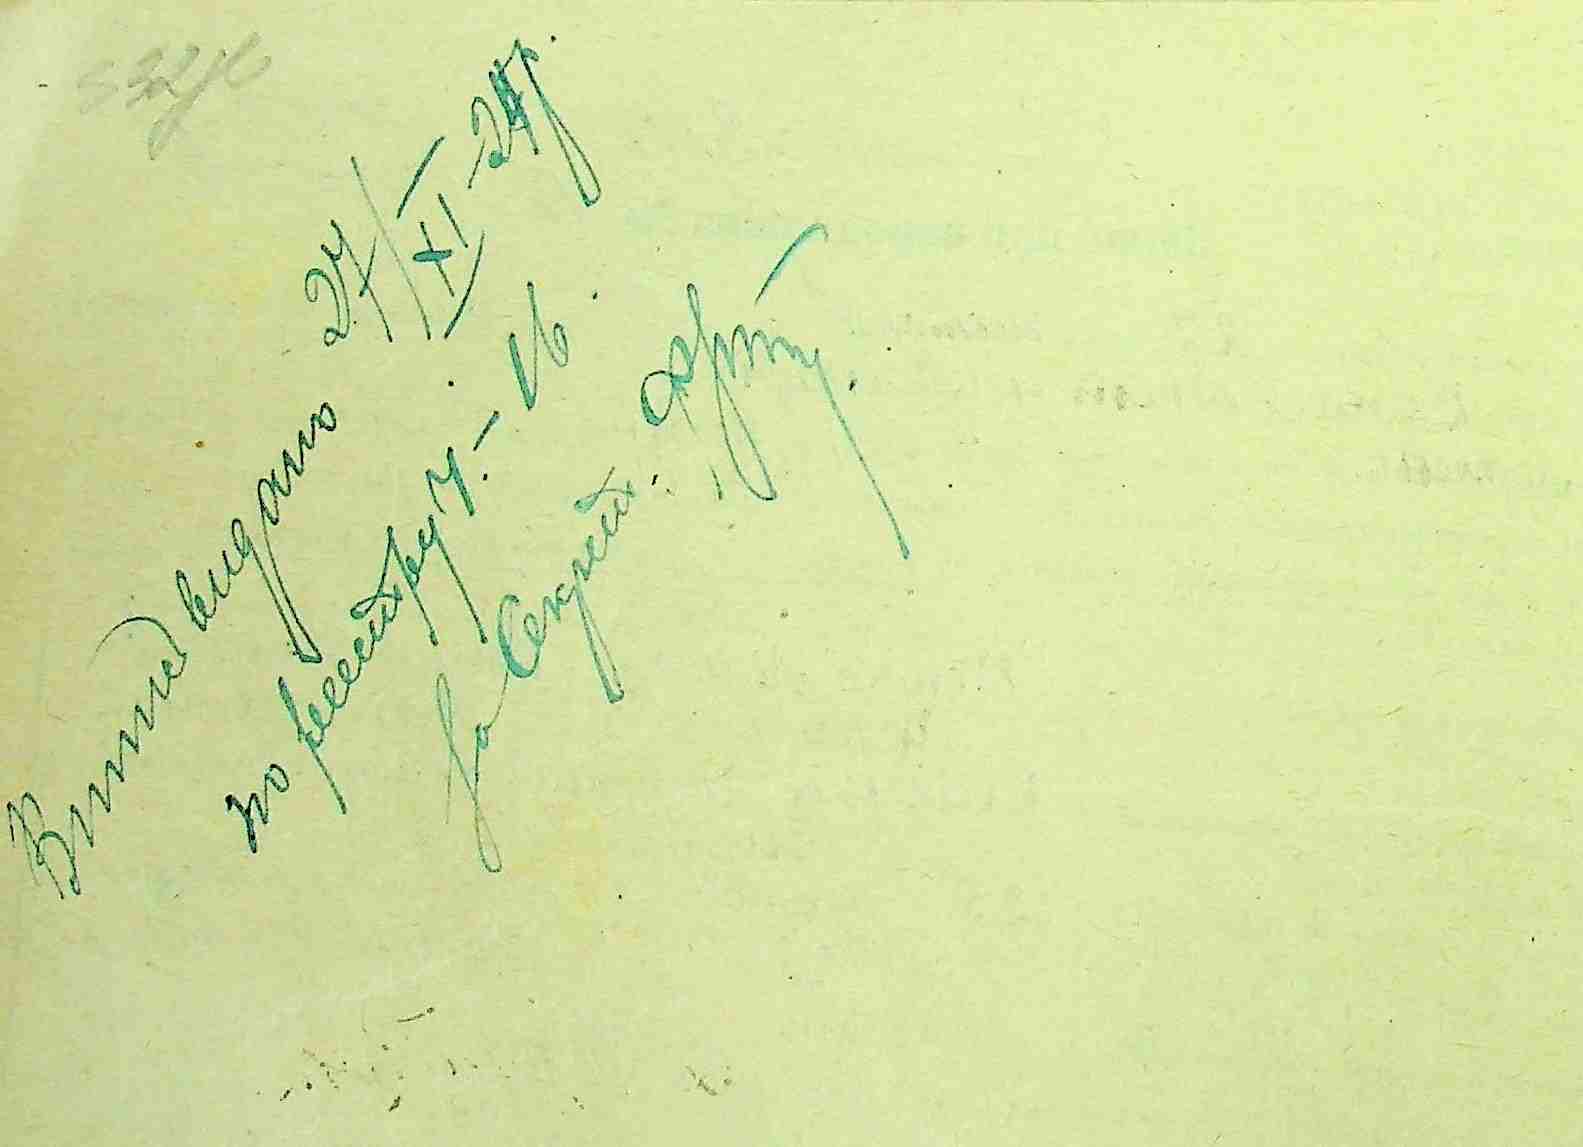 Витяг видано 27/XI-24р.
по реєстру ч.-16.
за Секрет.